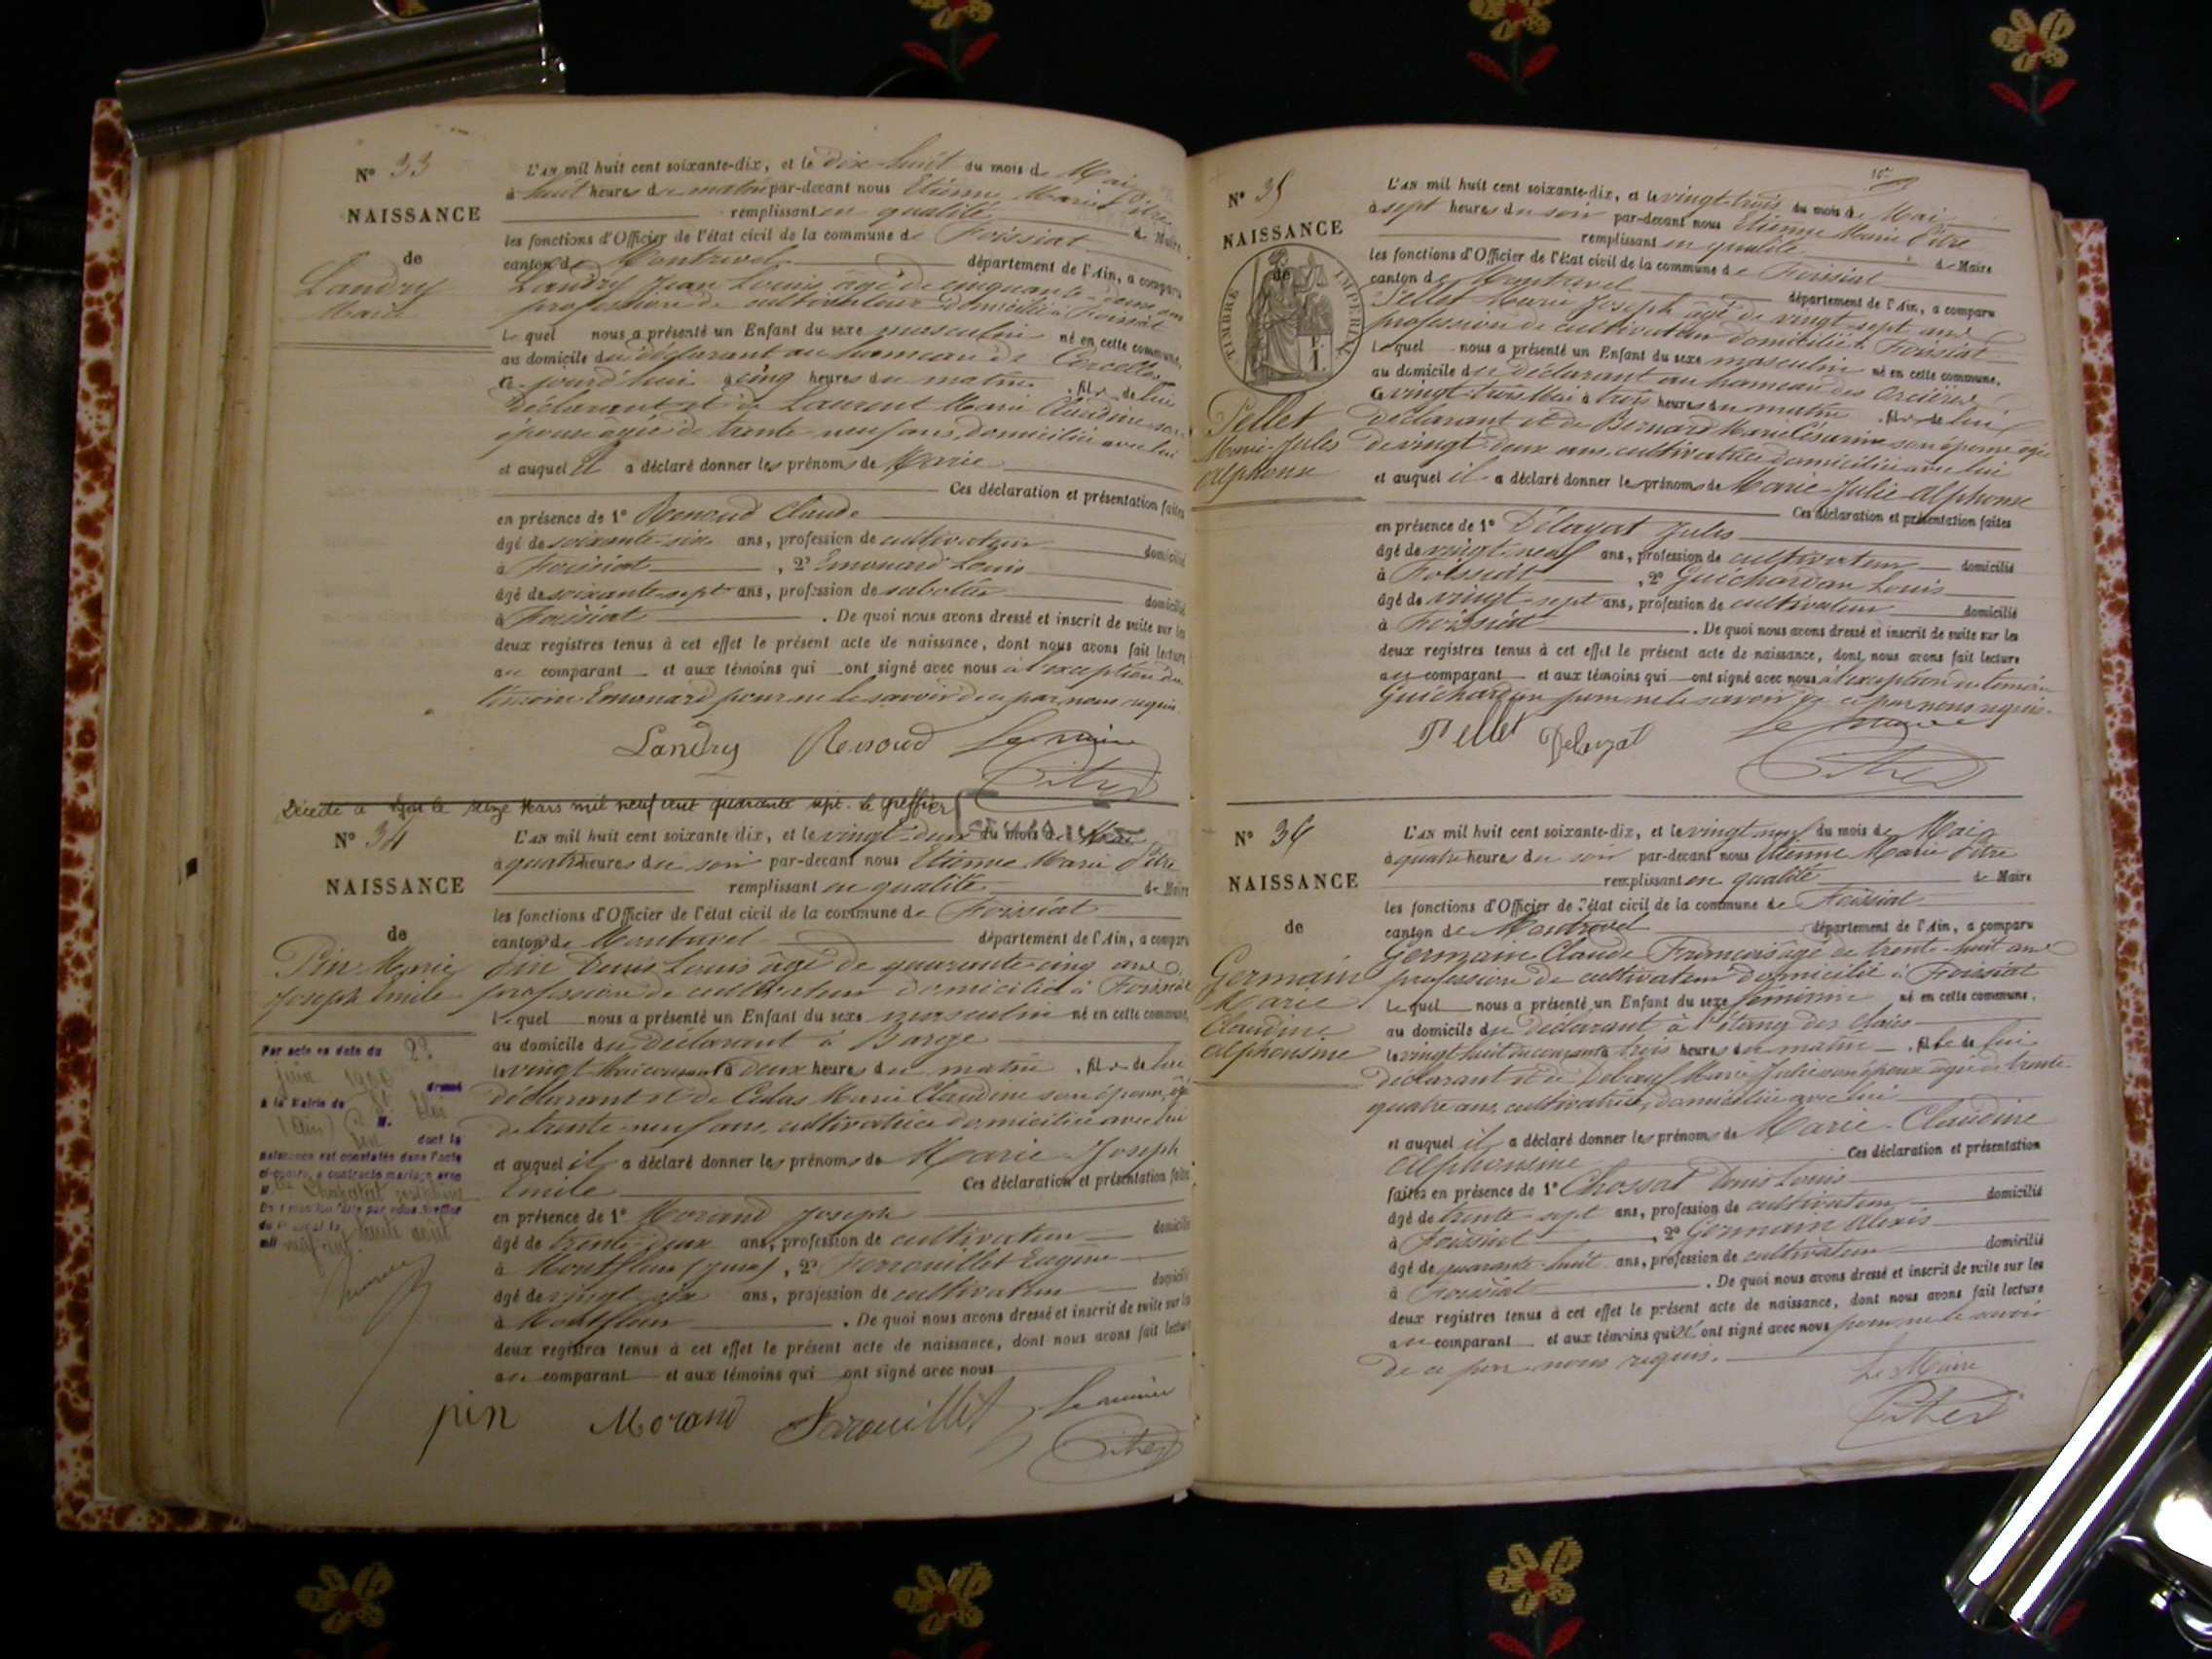 N° 33
NAISSANCE
de
Landry
Marie
L'AN mil huit cent soixante-dix, et le dix huit du mois de Mai
à huit heures du matin par-devant nous Etienne Marie Pitre
remplissant en qualité de Maire
les fonctions d'Officier de l'état civil de la commune de Foissiat
canton de Montrevel département de l'Ain, a comparu
Landry Jean Louis âgé de cinquante ans
profession de cultivateur domicilié à Foissiat
Lequel nous a présenté un Enfant du sexe masculin né en cette commune,
au domicile du déclarant au hameau de Corcelles
ce jourd'hui à cinq heures du matin, fils de lui
déclarant et de Laurent Marie Claudine son
épouse âgée de trente-neuf ans, domiciliée avec lui
et auquel il a déclaré donner les prénoms de Marie
Ces déclaration et présentation faites
en présence de 1° Renoud Claude
âgé de soixante-six ans, profession de cultivateur domicilié
à Foissiat, 2° Emouard Louis
âgé de soixante-sept ans, profession de sabotier domicilié
à Foissiat. De quoi nous avons dressé et inscrit de suite sur les
deux registres tenus à cet effet le présent acte de naissance, dont nous avons fait lecture
au comparant et aux témoins qui ont signé avec nous à l'exception du
témoin Emouard pour ne le savoir de ce par nous requis.
Landry Renoud Le maire
Pitre
Décédé à Lyon le seize Mars mil neuf cent quarante sept. le greffier
N° 34
NAISSANCE
de
Pin Marie
Joseph Emile
Par acte en date du 23
juin 1900 dressé
à la Mairie de
(Ain) M.
Pin dont la
naissance est constatée dans l'acte
ci-contre, a contracté mariage avec
M.lle Chabatat Joséphine
mil neuf cent.
L'AN mil huit cent soixante-dix, et le vingt-deux du mois de Mai
à quatre heures du soir par-devant nous Etienne Marie Pitre
remplissant en qualité de Maire
les fonctions d'Officier de l'état civil de la commune de Foissiat
canton de Montrevel département de l'Ain, a comparu
Pin Denis Louis âgé de quarante-cinq ans
profession de cultivateur domicilié à Foissiat
Lequel nous a présenté un Enfant du sexe masculin né en cette commune,
au domicile du déclarant à Barge
le vingt Mai courant à deux heures du matin, fils de lui
déclarant et de Colas Marie Claudine son épouse, âgée
de trente-neuf ans, cultivatrice domiciliée avec lui
et auquel il a déclaré donner les prénoms de Marie Joseph
Emile Ces déclaration et présentation faites
en présence de 1° Morand Joseph
âgé de trente-deux ans, profession de cultivateur domicilié
à Montfleur (Jura), 2° Ferrouillet Eugène
âgé de vingt-six ans, profession de cultivateur domicilié
à Montfleur. De quoi nous avons dressé et inscrit de suite sur les
deux registres tenus à cet effet le présent acte de naissance, dont nous avons fait lecture
au comparant et aux témoins qui ont signé avec nous
pin Morand Ferouillet Le maire
Pitre
N° 35
NAISSANCE
de
TIMBRE IMPERIAL
Pellet
Marie-Jules
Alphonse
L'AN mil huit cent soixante-dix, et le vingt-trois du mois de Mai
à sept heures du soir par-devant nous Etienne Marie Pitre
remplissant en qualité de Maire
les fonctions d'Officier de l'état civil de la commune de Foissiat
canton de Montrevel département de l'Ain, a comparu
Pellet Marie Joseph âgé de vingt-sept ans
profession de cultivateur domicilié à Foissiat
Lequel nous a présenté un Enfant du sexe masculin né en cette commune,
au domicile du déclarant au hameau des Orcières
le vingt-trois Mai à trois heures du matin, fils de lui
déclarant et de Bernard Marie Césarine son épouse âgée
de vingt-deux ans, cultivatrice domiciliée avec lui
et auquel il a déclaré donner les prénoms de Marie-Julie Alphonse
Ces déclaration et présentation faites
en présence de 1° Délayat Jules
âgé de vingt-neuf ans, profession de cultivateur domicilié
à Foissiat, 2° Guichardan Louis
âgé de vingt-sept ans, profession de cultivateur domicilié
à Foissiat. De quoi nous avons dressé et inscrit de suite sur les
deux registres tenus à cet effet le présent acte de naissance, dont nous avons fait lecture
au comparant et aux témoins qui ont signé avec nous à l'exception du témoin
Guichardan pour ne le savoir de ce par nous requis.
Pellet Delayat Le maire
Pitre
N° 36
NAISSANCE
de
Germain
Marie
Claudine
Alphonsine
L'AN mil huit cent soixante-dix, et le vingt-neuf du mois de Mai
à quatre heures du soir par-devant nous Etienne Marie Pitre
remplissant en qualité de Maire
les fonctions d'Officier de l'état civil de la commune de Foissiat
canton de Montrevel département de l'Ain, a comparu
Germain Claude François âgé de trente-huit ans
profession de cultivateur domicilié à Foissiat
Lequel nous a présenté un Enfant du sexe féminin né en cette commune,
au domicile du déclarant à l'étang des Claies
le vingt-huit du courant à trois heures du matin, fille de lui
déclarant et de Deboeuf Marie Julie son épouse âgée de trente
quatre ans, cultivatrice, domiciliée avec lui
et auquel il a déclaré donner les prénoms de Marie-Claudine
Alphonsine Ces déclaration et présentation
faites en présence de 1° Chossat Denis Louis
âgé de trente-sept ans, profession de cultivateur domicilié
à Foissiat, 2° Germain Alexis
âgé de quarante-huit ans, profession de cultivateur domicilié
à Foissiat. De quoi nous avons dressé et inscrit de suite sur les
deux registres tenus à cet effet le présent acte de naissance, dont nous avons fait lecture
au comparant et aux témoins qui n'ont signé avec nous pour ne le savoir
de ce par nous requis.
Le Maire
Pitre